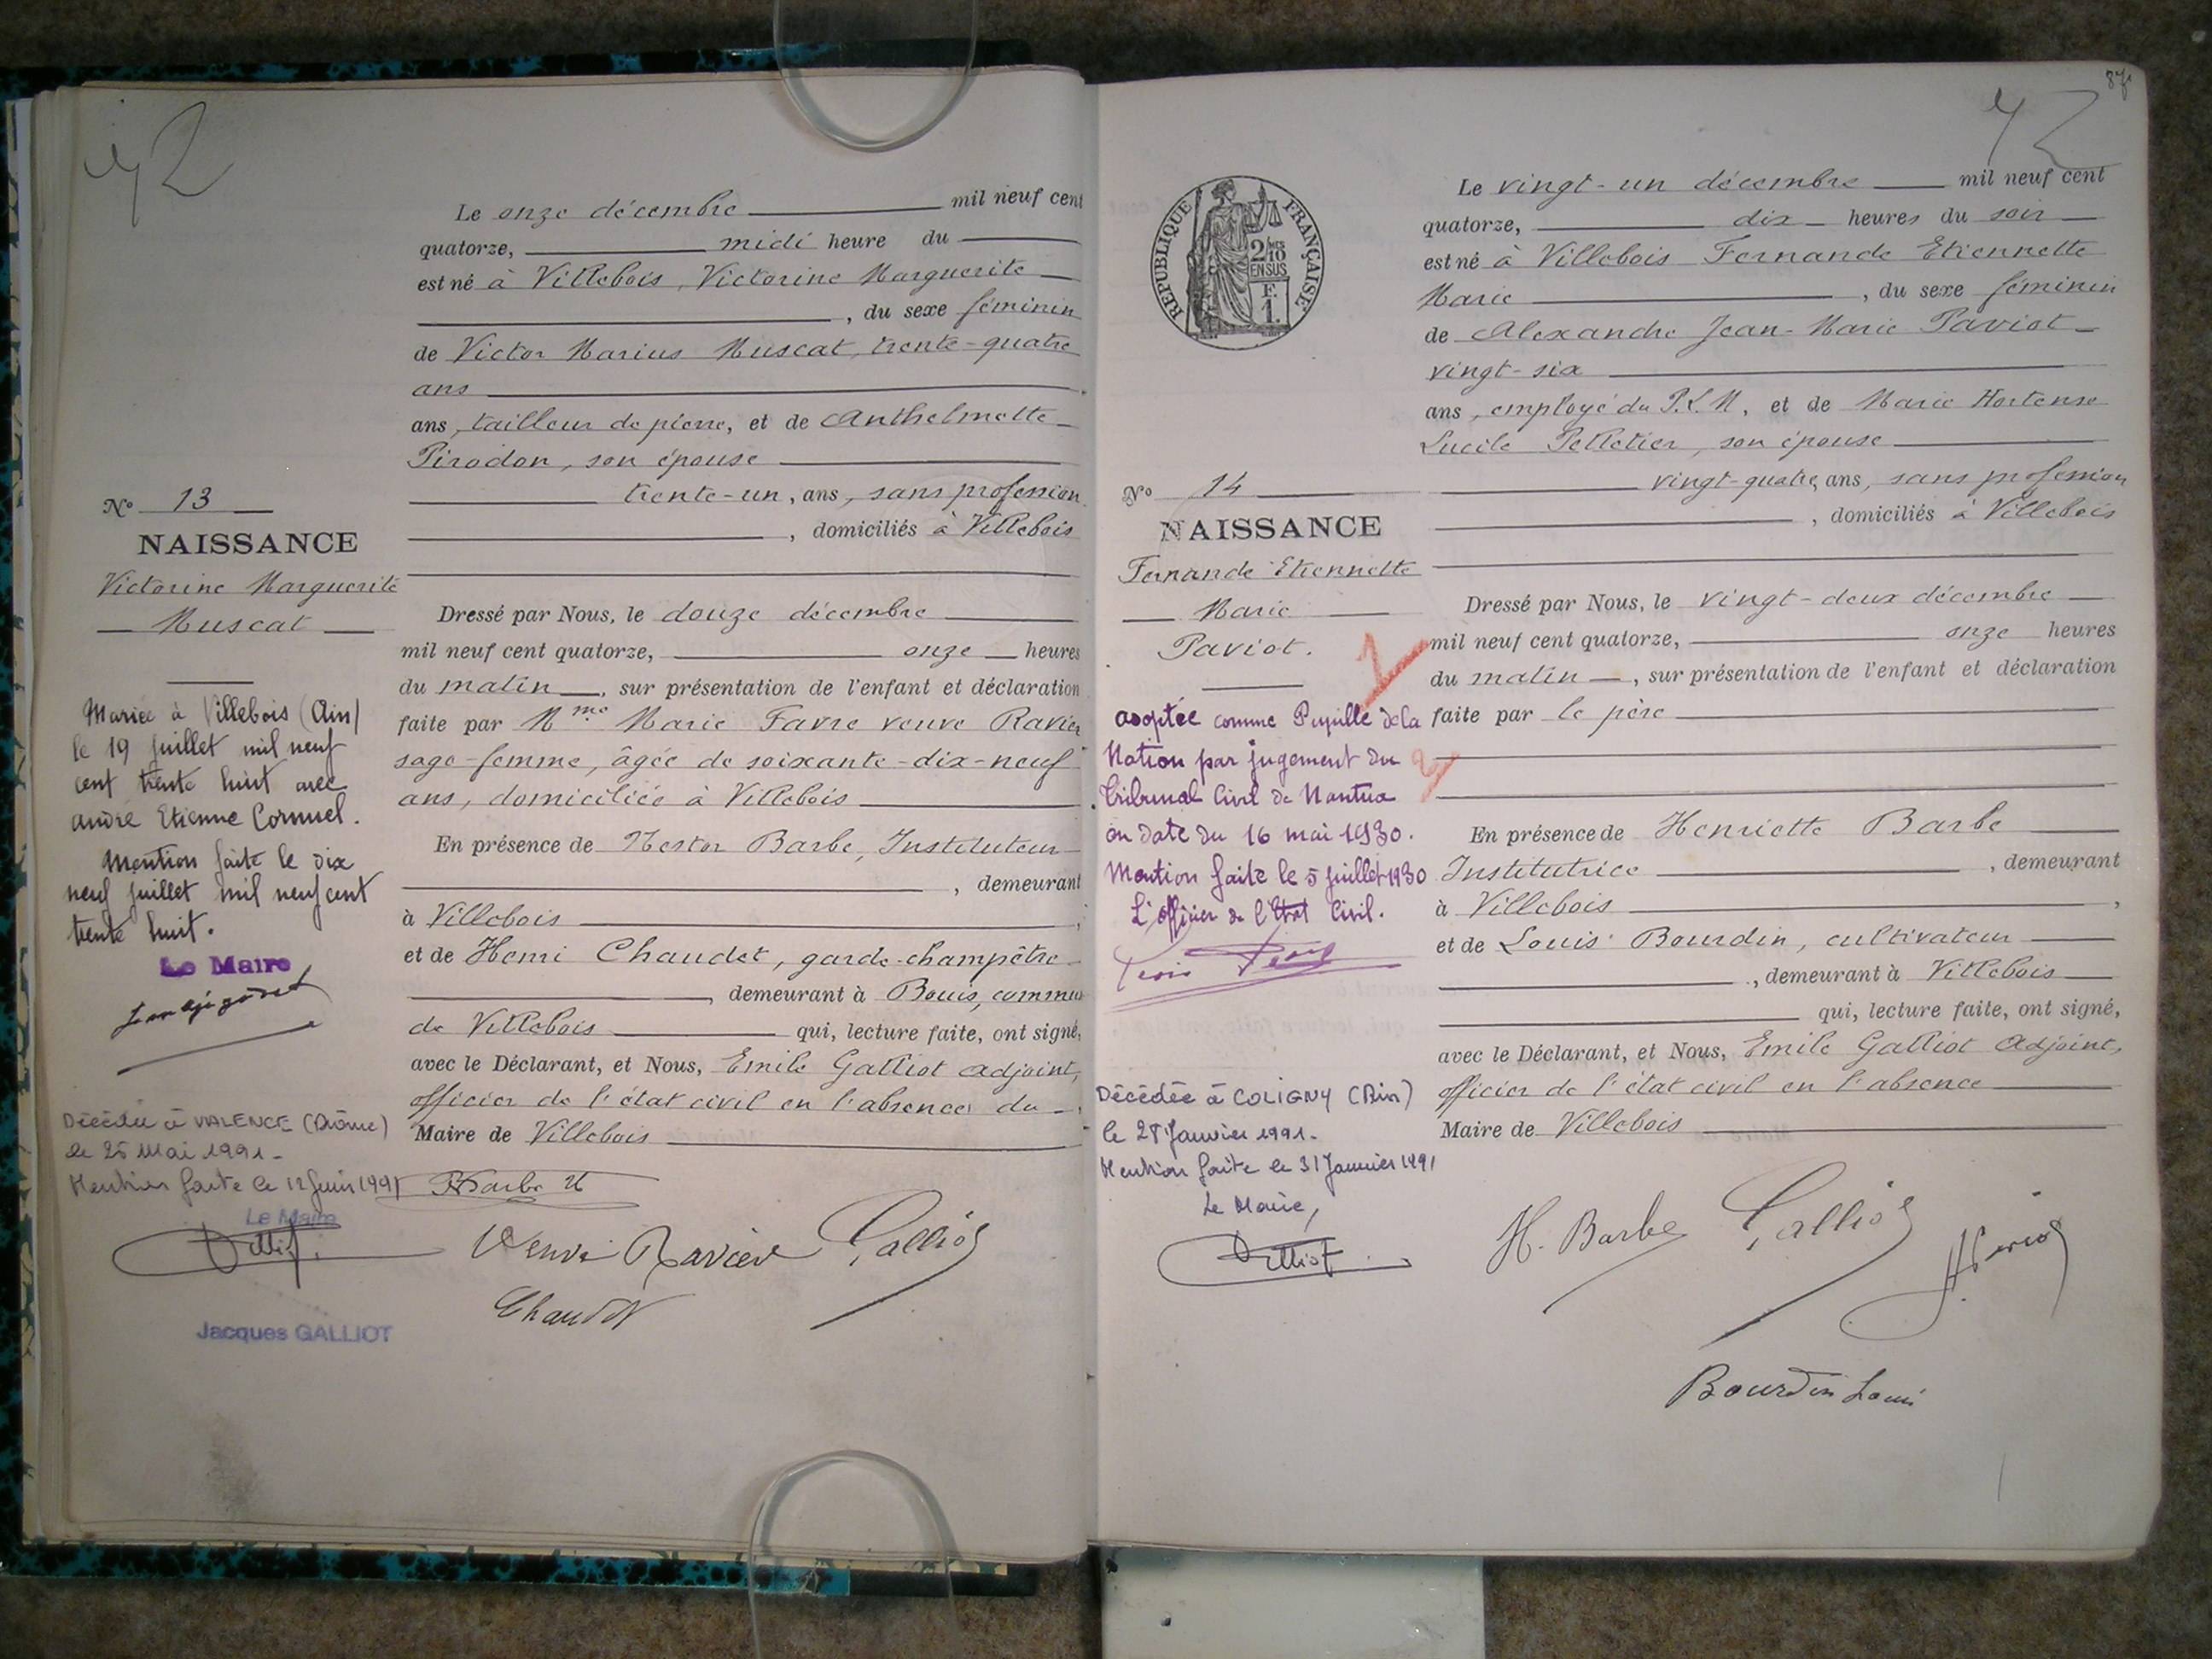 Le onze décembre mil neuf cent
quatorze, midi heure du
est né à Villebois, Victorine Marguerite
, du sexe féminin
de Victor Marius Muscat, trente-quatre
ans
ans, tailleur de pierre, et de Anthelmette
Pirodon, son épouse
trente-un, ans, sans profession
, domiciliés à Villebois
No 13
NAISSANCE
Victorine Marguerite
Muscat
Mariée à Villebois (Ain)
le 19 juillet mil neuf
cent trente huit avec
andré Etienne Cornuel.
Mention faite le dix
neuf juillet mil neuf cent
trente huit.
Le Maire
Décédée à VALENCE (Drôme)
le 25 Mai 1991-
Mention faite le 12 Juin 1991
Le Maire
Jacques GALLIOT
Dressé par Nous, le douze décembre
mil neuf cent quatorze, onze heures
du matin, sur présentation de l'enfant et déclaration
faite par Mme Marie Favre veuve Ravier
sage-femme, âgée de soixante-dix-neuf
ans, domiciliée à Villebois
En présence de Nestor Barbe, Instituteur
, demeurant
à Villebois
et de Henri Chaudet, garde-champêtre
, demeurant à Bouis, commune
de Villebois qui, lecture faite, ont signé,
avec le Déclarant, et Nous, Emile Galliot adjoint,
officier de l'état civil en l'absence du
Maire de Villebois
Veuve Ravier Galliot
Chaudet
87
REPUBLIQUE FRANÇAISE
2/10
EN SUS
F.
1.
Le vingt-un décembre mil neuf cent
quatorze, dix heures du soir
est né à Villebois Fernande Etiennette
Marie , du sexe féminin
de Alexandre Jean-Marie Paviot
vingt-six
ans, employé du P.L.M, et de Marie Hortense
Lucile Pelletier, son épouse
vingt-quatre, ans, sans profession
, domiciliés à Villebois
No 14
NAISSANCE
Fernande Etiennette
Marie
Paviot.
adoptée comme Pupille de la
Nation par jugement du
Tribunal Civil de Nantua
en date du 16 mai 1930.
Mention faite le 5 juillet 1930
L'officier de l'Etat Civil.
Décédée à COLIGNY (Ain)
le 28 Janvier 1991.
Mention faite le 31 Janvier 1991
Le Maire,
Galliot
Dressé par Nous, le vingt-deux décembre
mil neuf cent quatorze, onze heures
du matin, sur présentation de l'enfant et déclaration
faite par le père
En présence de Henriette Barbe
Institutrice , demeurant
à Villebois ,
et de Louis Bourdin, cultivateur
, demeurant à Villebois
qui, lecture faite, ont signé,
avec le Déclarant, et Nous, Emile Galliot adjoint,
officier de l'état civil en l'absence
Maire de Villebois
H. Barbe Galliot
Bourdin Louis